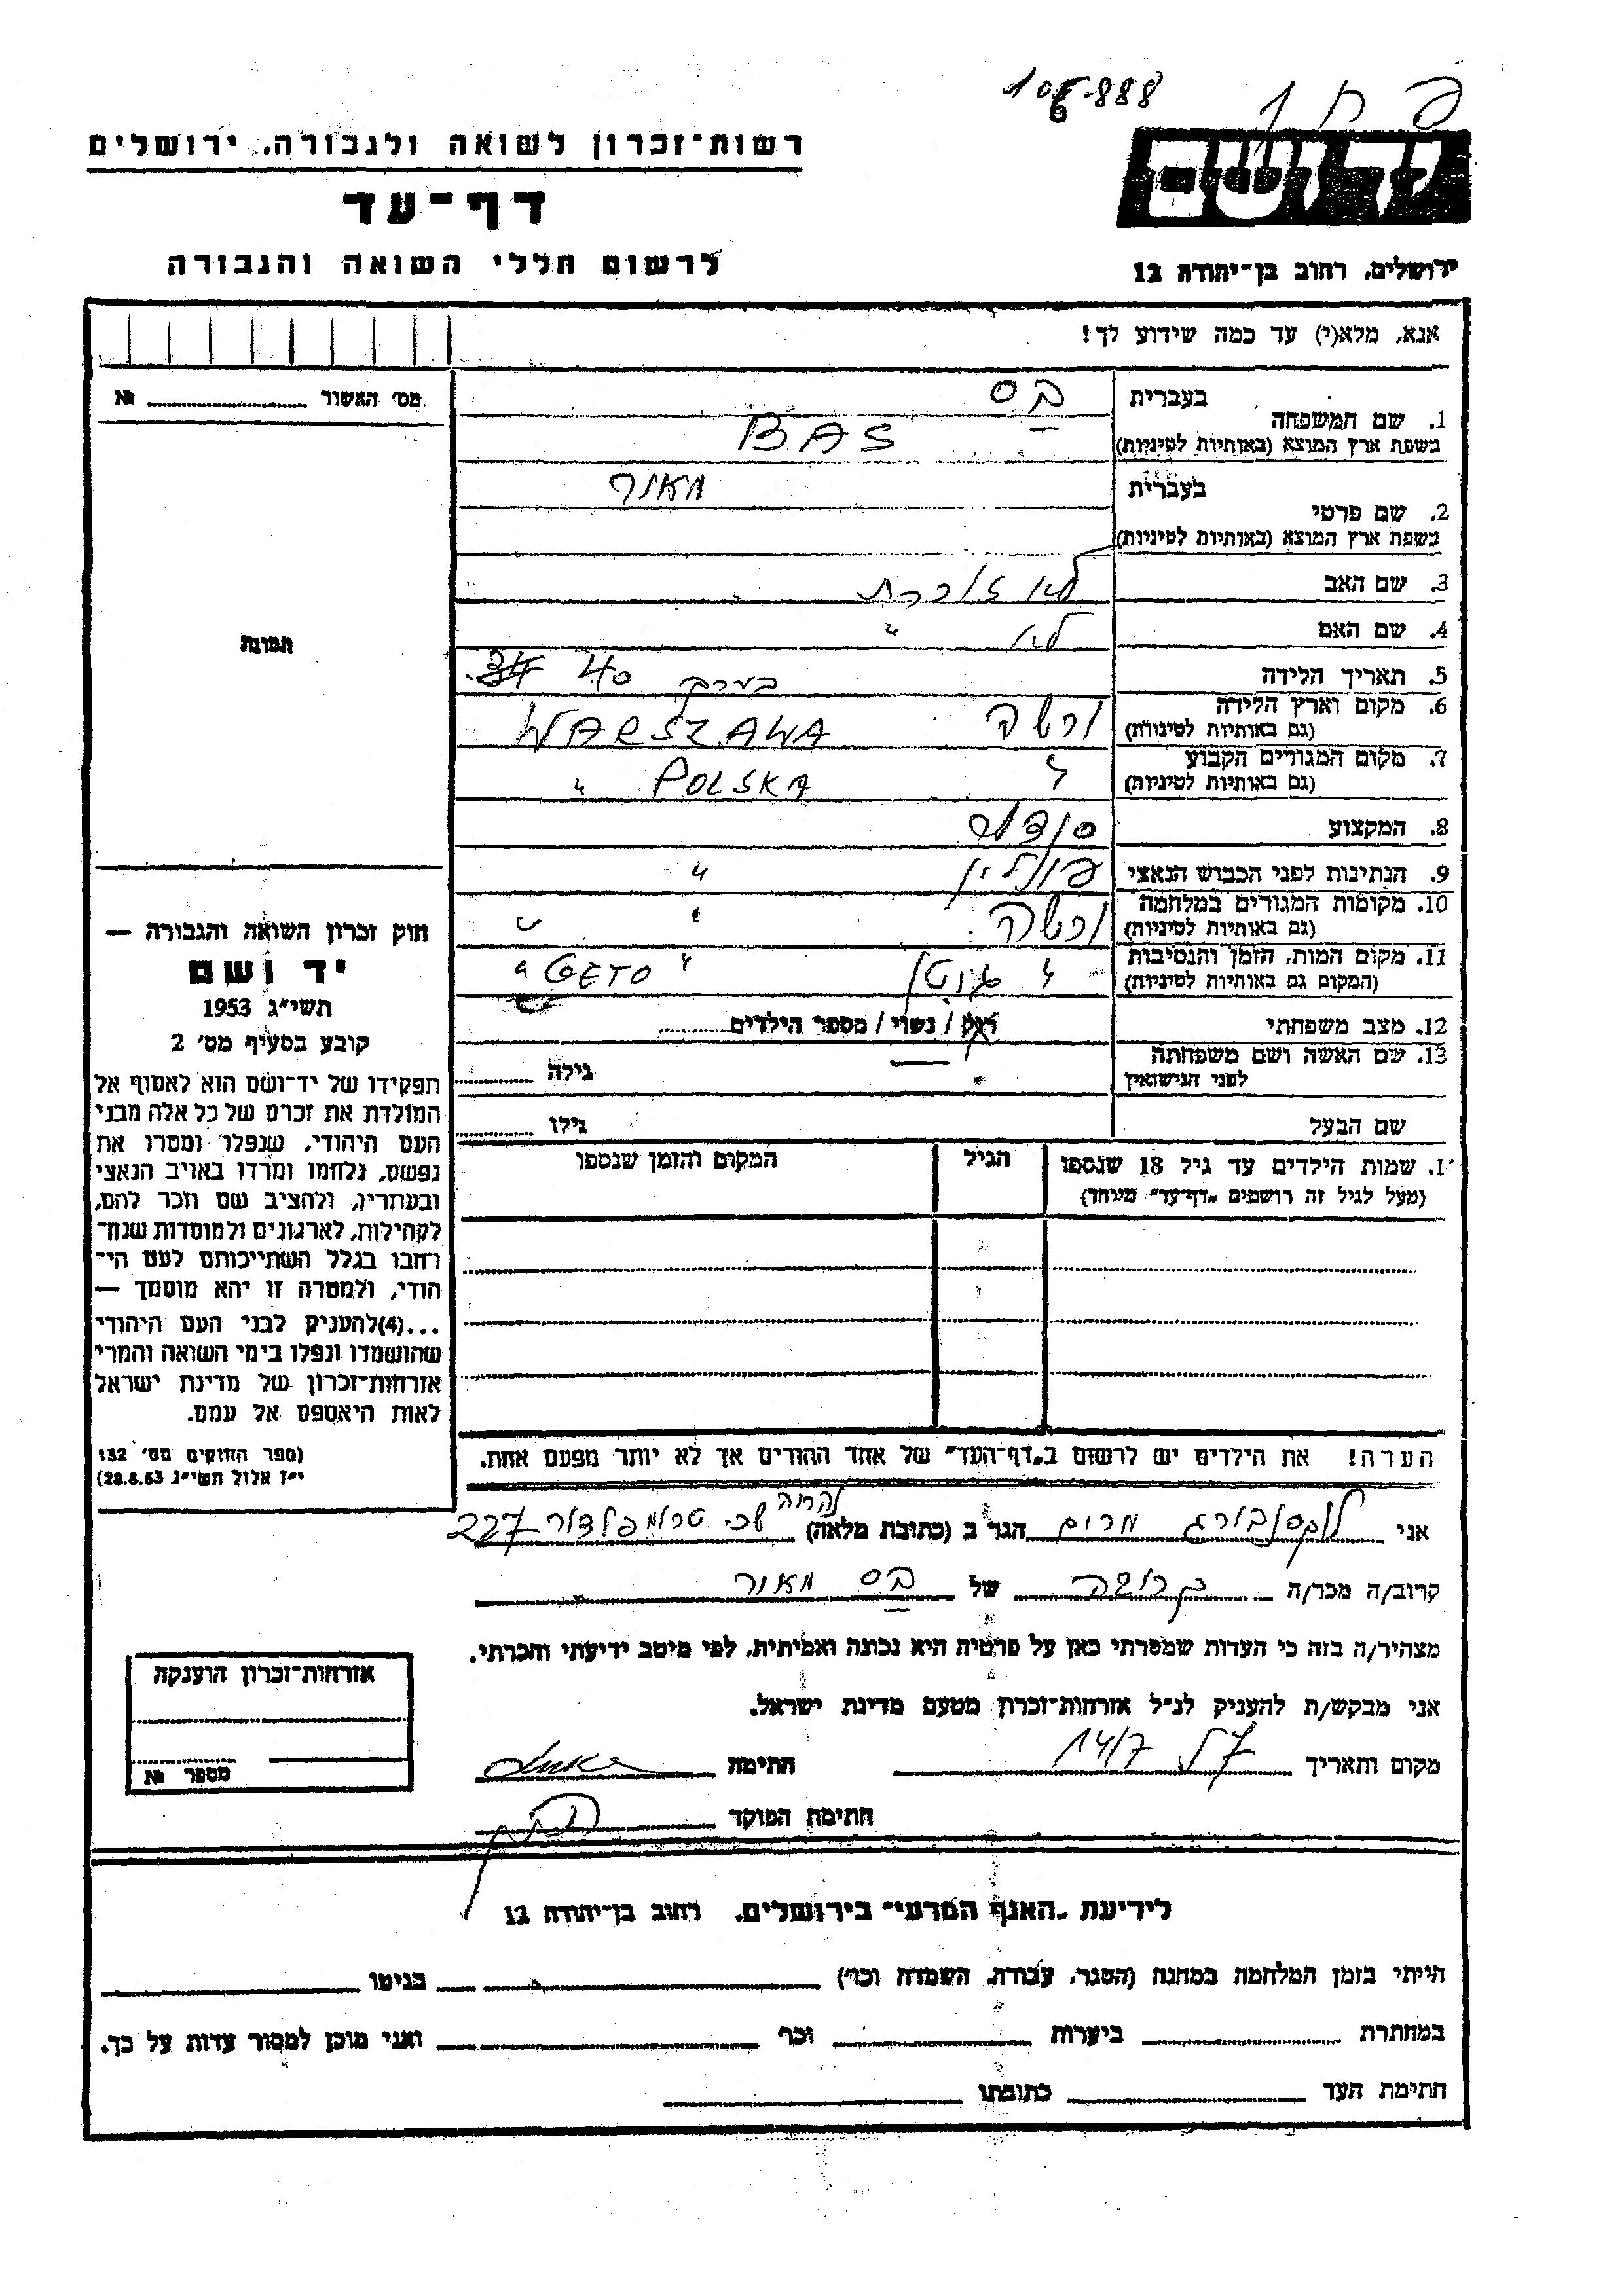 108888
יד ושם
רשות־זכרון לשואה ולגבורה, ירושלים
דף־עד
לרשום חללי השואה והגבורה
ירושלים, רחוב בן־יהודה 12
אנא, מלא(י) עד כמה שידוע לך!
מס׳ האשור № 
תמונה
בעברית בס
1. שם המשפחה
בשפת ארץ המוצא (באותיות לטיניות) BAS
בעברית מאיר
2. שם פרטי
בשפת ארץ המוצא (באותיות לטיניות)
3. שם האב לא זוכרת
4. שם האם לא "
5. תאריך הלידה בערך 40
6. מקום וארץ הלידה ורשה WARSZAWA
(גם באותיות לטיניות)
7. מקום המגורים הקבוע " POLSKA "
(גם באותיות לטיניות)
8. המקצוע
9. הנתינות לפני הכבוש הנאצי פולין "
10. מקומות המגורים במלחמה ורשה " "
(גם באותיות לטיניות)
11. מקום המות, הזמן והנסיבות " גיטו " GETO "
(המקום גם באותיות לטיניות)
12. מצב משפחתי רווק / נשוי / מספר הילדים
13. שם האשה ושם משפחתה גילה
לפני הנישואין
שם הבעל גילו
1. שמות הילדים עד גיל 18 שנספו הגיל המקום והזמן שנספו
(מעל לגיל זה רושמים „דף־עד״ מיוחד)
הערה! את הילדים יש לרשום ב„דף־העד״ של אחד ההורים אך לא יותר מפעם אחת.
חוק זכרון השואה והגבורה —
יד ושם
תשי״ג 1953
קובע בסעיף מס׳ 2
תפקידו של יד־ושם הוא לאסוף אל
המולדת את זכרם של כל אלה מבני
העם היהודי, שנפלו ומסרו את
נפשם, נלחמו ומרדו באויב הנאצי
ובעוזריו, ולהציב שם וזכר להם,
לקהילות, לארגונים ולמוסדות שנח־
רבו בגלל השתייכותם לעם הי־
הודי, ולמטרה זו יהא מוסמך —
...(4)להעניק לבני העם היהודי
שהושמדו ונפלו בימי השואה והמרי
אזרחות־זכרון של מדינת ישראל
לאות היאספם אל עמם.
(ספר החוקים מס׳ 132
י״ז אלול תשי״ג 28.8.53)
נהריה
אני לוקסנבורג מרים הגר ב (כתובת מלאה) שכ׳ טרומפלדור 227
קרוב/ה מכר/ה קרובה של בס מאיר
מצהיר/ה בזה כי העדות שמסרתי כאן על פרטיה היא נכונה ואמיתית, לפי מיטב ידיעתי והכרתי.
אני מבקש/ת להעניק לנ״ל אזרחות־זכרון מטעם מדינת ישראל.
מקום ותאריך 14/7 חתימה
חתימת הפוקד
אזרחות־זכרון הוענקה
מספר №
לידיעת „האגף המדעי״ בירושלים, רחוב בן־יהודה 12
הייתי בזמן המלחמה במחנה (הסגר, עבודה, השמדה וכו׳) בגיטו
במחתרת ביערות וכו׳ ואני מוכן למסור עדות על כך.
חתימת העד כתובתו